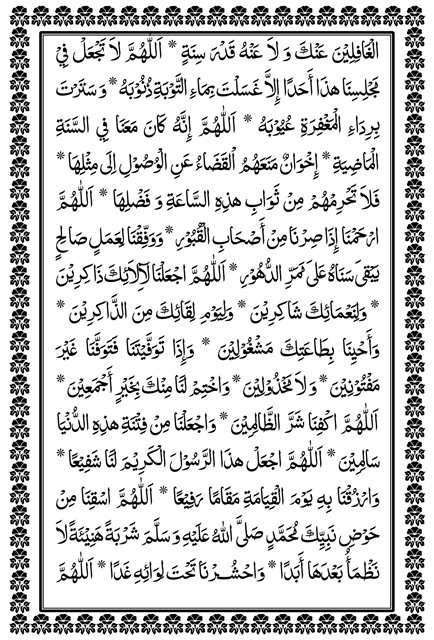 الْغَافِلِيْنَ عَنْكَ وَ لَا عَنْهُ قَدْرَ سِنَةٍ * اَللّٰهُمَّ لَا تَجْعَلْ فِيْ
مَجْلِسِنَا هٰذَا أَحَدًا إِلَّا غَسَلْتَ بِمَاءِ التَّوْبَةِ ذُنُوْبَهُ * وَ سَتَرْتَ
بِرِدَاءِ الْمَغْفِرَةِ عُيُوْبَهُ * اَللّٰهُمَّ إِنَّهُ كَانَ مَعَنَا فِي السَّنَةِ
الْمَاضِيَةِ * إِخْوَانٌ مَنَعَهُمُ الْقَضَاءُ عَنِ الْوُصُوْلِ إِلَى مِثْلِهَا *
فَلَا تَحْرِمْهُمْ مِنْ ثَوَابِ هٰذِهِ السَّاعَةِ وَ فَضْلِهَا * اَللّٰهُمَّ
ارْحَمْنَا إِذَا صِرْنَا مِنْ أَصْحَابِ الْقُبُوْرِ * وَوَفِّقْنَا لِعَمَلٍ صَالِحٍ
يَبْقَى سَنَاهُ عَلَى مَمَرِّ الدُّهُوْرِ * اَللّٰهُمَّ اجْعَلْنَا لِآلَائِكَ ذَاكِرِيْنَ
* وَلِنَعْمَائِكَ شَاكِرِيْنَ * وَلِيَوْمِ لِقَائِكَ مِنَ الذَّاكِرِيْنَ *
وَأَحْيِنَا بِطَاعَتِكَ مَشْغُوْلِيْنَ * وَإِذَا تَوَفَّيْتَنَا فَتَوَفَّنَا غَيْرَ
مَفْتُوْنِيْنَ * وَلَا مَخْذُوْلِيْنَ * وَاخْتِمْ لَنَا مِنْكَ بِخَيْرٍ أَجْمَعِيْنَ *
اَللّٰهُمَّ اكْفِنَا شَرَّ الظَّالِمِيْنَ * وَاجْعَلْنَا مِنْ فِتْنَةِ هٰذِهِ الدُّنْيَا
سَالِمِيْنَ * اَللّٰهُمَّ اجْعَلْ هٰذَا الرَّسُوْلَ الْكَرِيْمَ لَنَا شَفِيْعًا *
وَارْزُقْنَا بِهِ يَوْمَ الْقِيَامَةِ مَقَامًا رَفِيْعًا * اَللّٰهُمَّ اسْقِنَا مِنْ
حَوْضِ نَبِيِّكَ مُحَمَّدٍ صَلَّى اللهُ عَلَيْهِ وَسَلَّمَ شَرْبَةً هَنِيْئَةً لَا
نَظْمَأُ بَعْدَهَا أَبَدًا * وَاحْشُرْنَا تَحْتَ لِوَائِهِ غَدًا * اَللّٰهُمَّ